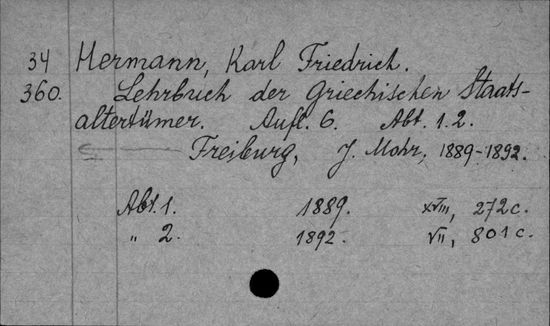 34 Hermann, Karl Friedrich.
360. Lehrbuch der Griechischen Staats-
altertümer. Aufl. 6. Abt. 1.2.
Freiburg, J. Mohr, 1889-1892.
Abt. 1. 1889. XVIII, 272 c.
" 2. 1892. VII, 801 c.